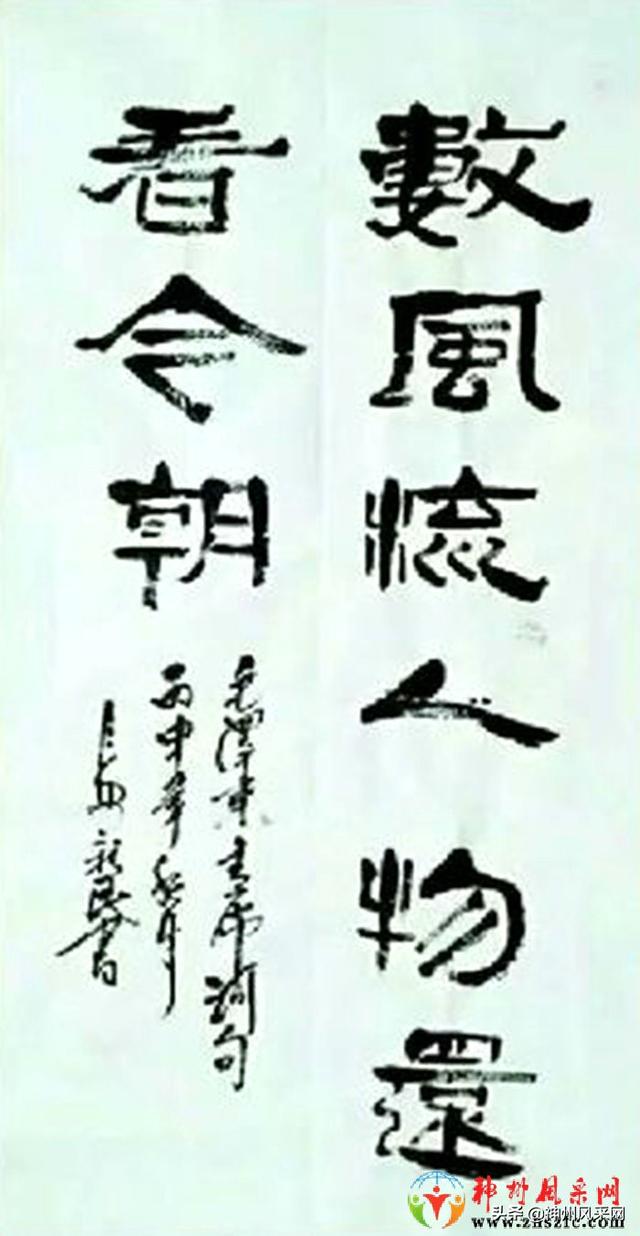 數風流人物還
看今朝
毛澤東主席詞句
丙申年秋月
新民書
神州风采网
头条 @神州风采网
www.znszfc.com